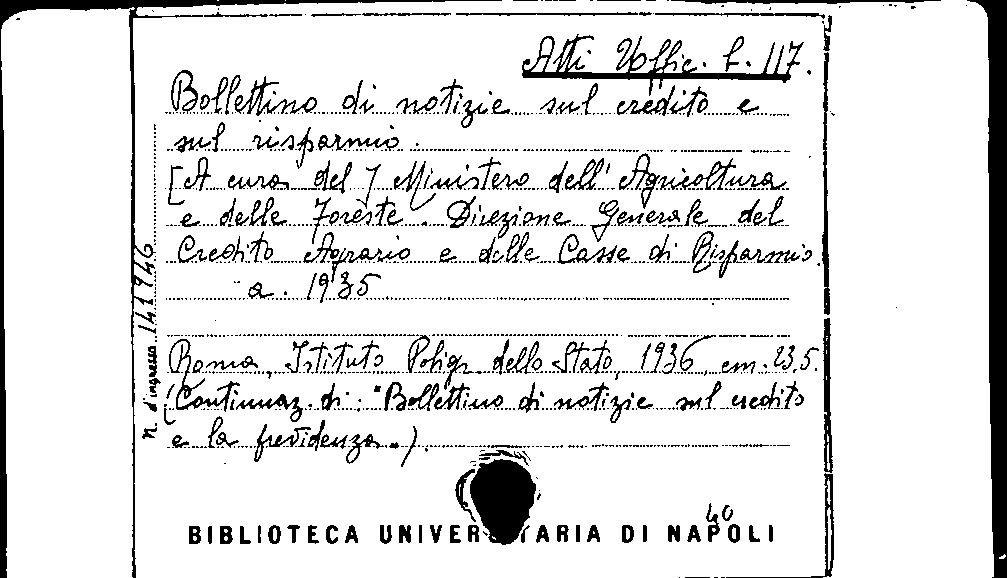 Atti Uffic. L. 117.
Bollettino di notizie sul credito e
sul risparmio.
[A cura del] Ministero dell'Agricoltura
e delle Foreste. Direzione Generale del
Credito Agrario e delle Casse di Risparmio.
a. 1935
Roma, Istituto Poligr. dello Stato, 1936, cm. 23,5.
(Continuaz. di: "Bollettino di notizie sul credito
e la previdenza".)
n. d'ingresso 141946
40
BIBLIOTECA UNIVERSITARIA DI NAPOLI